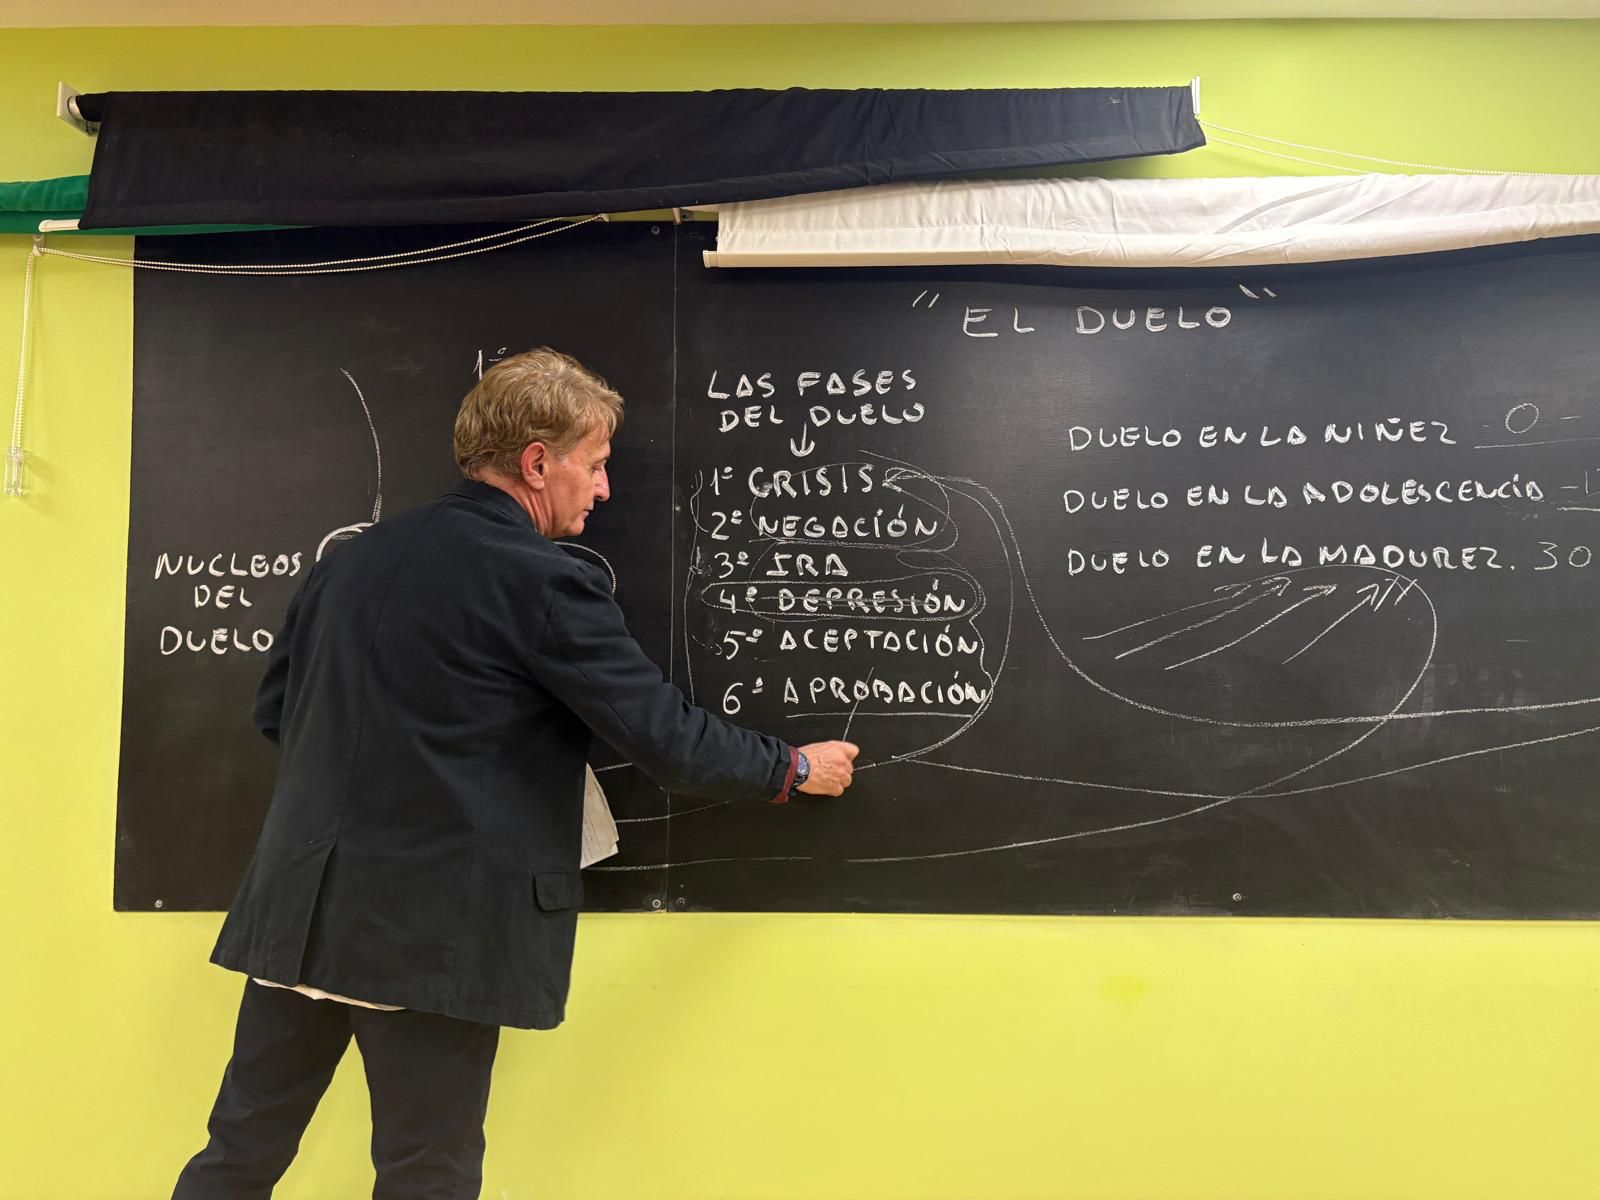 " EL DUELO "
1º
LAS FASES
DEL DUELO
1º CRISIS
2º NEGACIÓN
3º IRA
4º DEPRESIÓN
5º ACEPTACIÓN
6º APROBACIÓN
NUCLEOS
DEL
DUELO
DUELO EN LA NIÑEZ 0 -
DUELO EN LA ADOLESCENCIA -
DUELO EN LA MADUREZ. 30